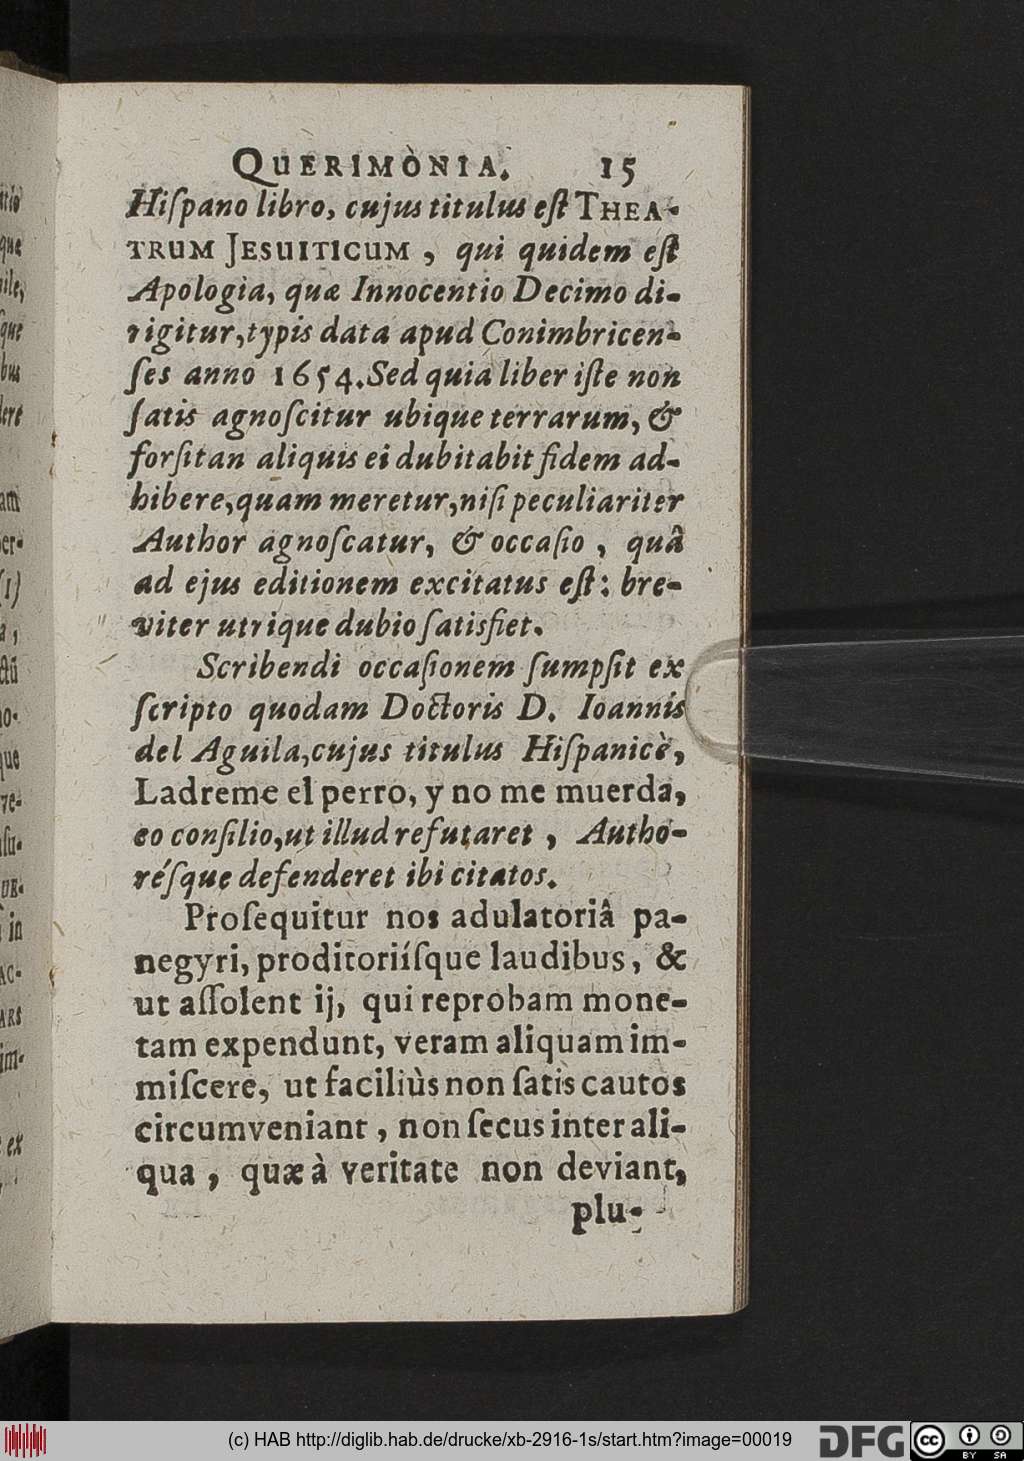 QUERIMÒNIA. 15
Hiſpano libro, cujus titulus eſt THEA-
TRUM JESUITICUM, qui quidem eſt
Apologia, quæ Innocentio Decimo di-
rigitur, typis data apud Conimbricen-
ſes anno 1654. Sed quia liber iſte non
ſatis agnoſcitur ubique terrarum, &
forſitan aliquis ei dubitabit fidem ad-
hibere, quam meretur, niſi peculiariter
Author agnoſcatur, & occaſio, quâ
ad ejus editionem excitatus eſt: bre-
viter utrique dubio ſatisfiet.
Scribendi occaſionem ſumpſit ex
ſcripto quodam Doctoris D. Ioannis
del Aguila, cujus titulus Hiſpanicè,
Ladreme el perro, y no me muerda,
eo conſilio, ut illud refutaret, Autho-
réſque defenderet ibi citatos.
Proſequitur nos adulatoriâ pa-
negyri, proditoriíſque laudibus, &
ut aſſolent ij, qui reprobam mone-
tam expendunt, veram aliquam im-
miſcere, ut faciliùs non ſatìs cautos
circumveniant, non ſecus inter ali-
qua, quæ à veritate non deviant,
plu-
(c) HAB http://diglib.hab.de/drucke/xb-2916-1s/start.htm?image=00019
DFG
cc BY SA